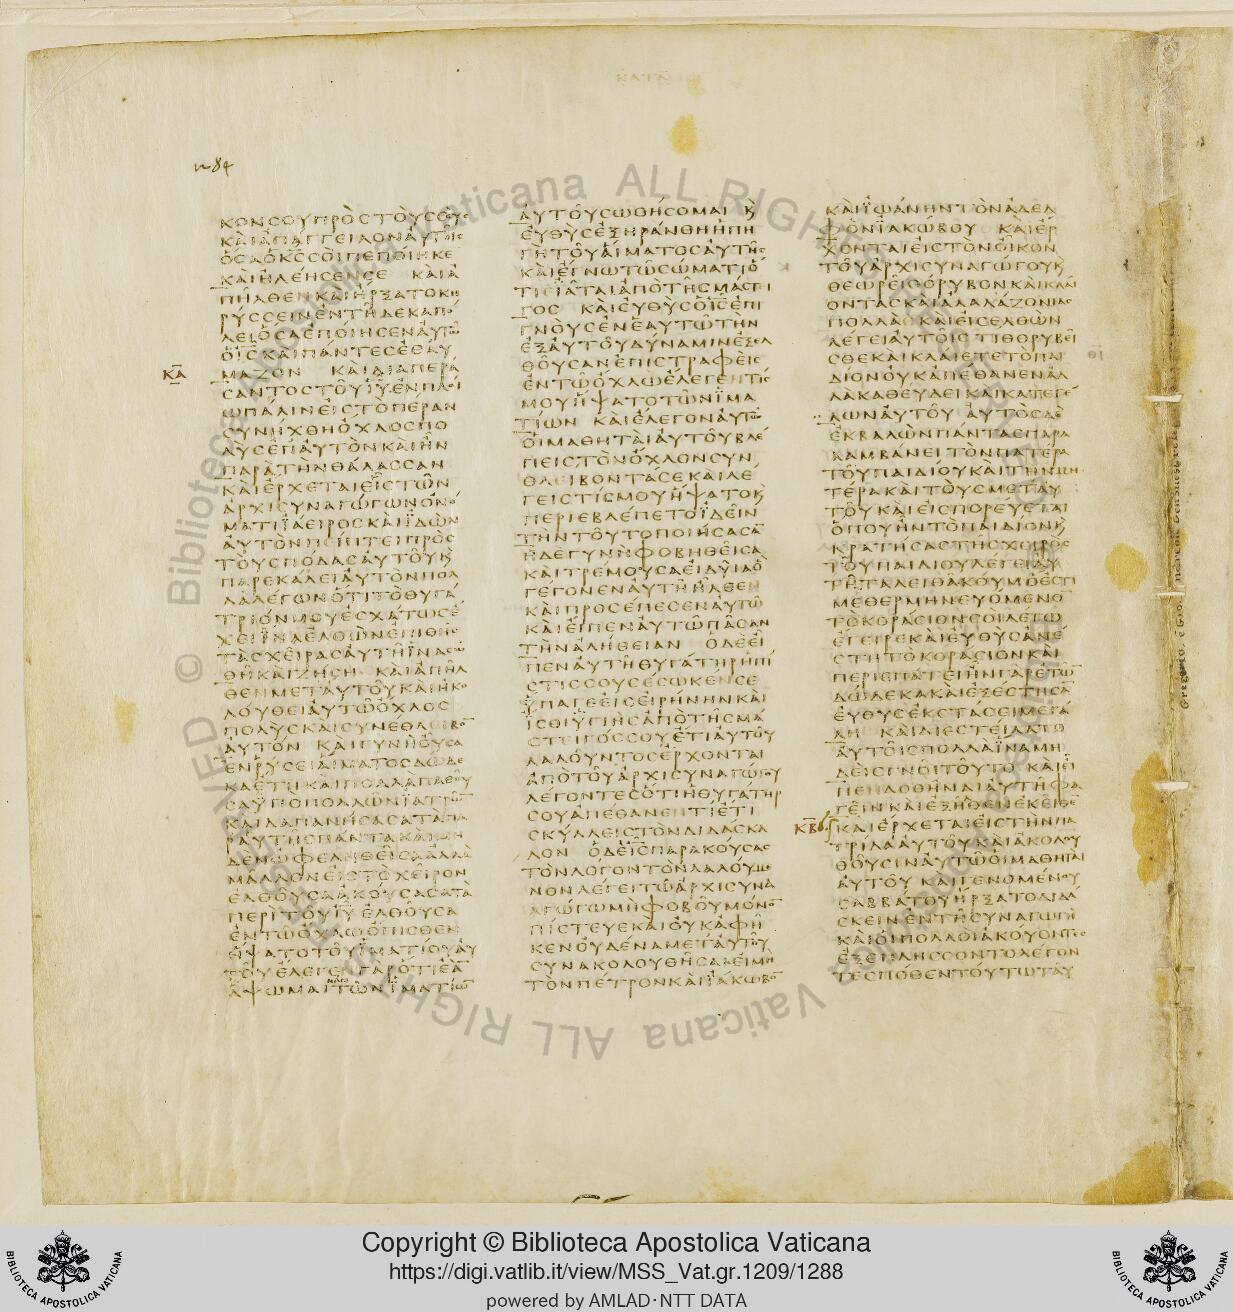 ΚΑΤΑ
ΚΟΝϹΟΥΠΡΟϹΤΟΥϹϹΟΥϹ
ΚΑΙΑΠΑΓΓΕΙΛΟΝΑΥΤΟΙϹ
ΟϹΑΟΚ̅Ϲ̅ϹΟΙΠΕΠΟΙΗΚΕ
ΚΑΙΗΛΕΗϹΕΝϹΕ ΚΑΙΑ
ΠΗΛΘΕΝΚΑΙΗΡΞΑΤΟΚΗ
ΡΥϹϹΕΙΝΕΝΤΗΔΕΚΑΠΟ
ΛΕΙΟϹΑΕΠΟΙΗϹΕΝΑΥΤΩ
ΟΙ̅Ϲ̅ΚΑΙΠΑΝΤΕϹΕΘΑΥ
ΚΑ ΜΑΖΟΝ ΚΑΙΔΙΑΠΕΡΑ
ϹΑΝΤΟϹΤΟΥΙ̅Υ̅ΕΝΠΛΟΙ
ΩΠΑΛΙΝΕΙϹΤΟΠΕΡΑΝ
ϹΥΝΗΧΘΗΟΧΛΟϹΠΟ
ΛΥϹΕΠΑΥΤΟΝΚΑΙΗΝ
ΠΑΡΑΤΗΝΘΑΛΑϹϹΑΝ
ΚΑΙΕΡΧΕΤΑΙΕΙϹΤΩΝ
ΑΡΧΙϹΥΝΑΓΩΓΩΝΟΝΟ
ΜΑΤΙΪΑΕΙΡΟϹΚΑΙΪΔΩΝ
ΑΥΤΟΝΠΕΙΠΤΕΙΠΡΟϹ
ΤΟΥϹΠΟΔΑϹΑΥΤΟΥΚ
ΠΑΡΕΚΑΛΕΙΑΥΤΟΝΠΟΛ
ΛΑΛΕΓΩΝΟΤΙΤΟΘΥΓΑ
ΤΡΙΟΝΜΟΥΕϹΧΑΤΩϹΕ
ΧΕΙΪΝΑΕΛΘΩΝΕΠΙΘΗϹ
ΤΑϹΧΕΙΡΑϹΑΥΤΗΪΝΑϹΩ
ΘΗΚΑΙΖΗϹΗ ΚΑΙΑΠΗΛ
ΘΕΝΜΕΤΑΥΤΟΥΚΑΙΗΚΟ
ΛΟΥΘΕΙΑΥΤΩΟΧΛΟϹ
ΠΟΛΥϹΚΑΙϹΥΝΕΘΛΕΙΒΟ̅
ΑΥΤΟΝ ΚΑΙΓΥΝΗΟΥϹΑ
ΕΝΡΥϹΕΙΑΙΜΑΤΟϹΔΩΔΕ
ΚΑΕΤΗΚΑΙΠΟΛΛΑΠΑΘΟΥ
ϹΑΫΠΟΠΟΛΛΩΝΪΑΤΡΩ̅
ΚΑΙΔΑΠΑΝΗϹΑϹΑΤΑΠΑ
ΡΑΥΤΗϹΠΑΝΤΑΚΑΙΜΗ
ΔΕΝΩΦΕΛΗΘΕΙϹΑΑΛΛΑ
ΜΑΛΛΟΝΕΙϹΤΟΧΕΙΡΟΝ
ΕΛΘΟΥϹΑΑΚΟΥϹΑϹΑΤΑ
ΠΕΡΙΤΟΥΙ̅Υ̅ ΕΛΘΟΥϹΑ
ΕΝΤΩΟΧΛΩΟΠΙϹΘΕΝ
ΗΨΑΤΟΤΟΥΪΜΑΤΙΟΥΑΥ
ΤΟΥΕΛΕΓΕΝΓΑΡΟΤΙΕΑ̅
ΑΨΩΜΑΙΤΩΝΪΜΑΤΙΩ̅
ΑΥΤΟΥϹΩΘΗϹΟΜΑΙ Κ
ΕΥΘΥϹΕΞΗΡΑΝΘΗΗΠΗ
ΓΗΤΟΥΑΙΜΑΤΟϹΑΥΤΗϹ
ΚΑΙΕΓΝΩΤΩϹΩΜΑΤΙΟ
ΤΙΕΙΑΤΑΙΑΠΟΤΗϹΜΑϹΤΙ
ΓΟϹ ΚΑΙΕΥΘΥϹΟΙ̅Ϲ̅ΕΠΙ
ΓΝΟΥϹΕΝΕΑΥΤΩΤΗΝ
ΕΞΑΥΤΟΥΔΥΝΑΜΙΝΕΞΕΛ
ΘΟΥϹΑΝΕΠΙϹΤΡΑΦΕΙϹ
ΕΝΤΩΟΧΛΩΕΛΕΓΕΝΤΙϹ
ΜΟΥΗΨΑΤΟΤΩΝΪΜΑ
ΤΙΩΝ ΚΑΙΕΛΕΓΟΝΑΥΤΩ
ΟΙΜΑΘΗΤΑΙΑΥΤΟΥΒΛΕ
ΠΕΙϹΤΟΝΟΧΛΟΝϹΥΝ
ΘΛΕΙΒΟΝΤΑϹΕΚΑΙΛΕ
ΓΕΙϹΤΙϹΜΟΥΗΨΑΤΟΚ
ΠΕΡΙΕΒΛΕΠΕΤΟΪΔΕΙΝ
ΤΗΝΤΟΥΤΟΠΟΙΗϹΑϹΑ̅
ΗΔΕΓΥΝΗΦΟΒΗΘΕΙϹΑ
ΚΑΙΤΡΕΜΟΥϹΑΕΙΔΥΙΑΟ
ΓΕΓΟΝΕΝΑΥΤΗΗΛΘΕΝ
ΚΑΙΠΡΟϹΕΠΕϹΕΝΑΥΤΩ
ΚΑΙΕΙΠΕΝΑΥΤΩΠΑϹΑΝ
ΤΗΝΑΛΗΘΕΙΑΝ ΟΔΕΕΙ
ΠΕΝΑΥΤΗΘΥΓΑΤΗΡΗΠΙ
ϹΤΙϹϹΟΥϹΕϹΩΚΕΝϹΕ
ΫΠΑΓΕΕΙϹΕΙΡΗΝΗΝΚΑΙ
ΪϹΘΙΫΓΙΗϹΑΠΟΤΗϹΜΑ
ϹΤΕΙΓΟϹϹΟΥΕΤΙΑΥΤΟΥ
ΛΑΛΟΥΝΤΟϹΕΡΧΟΝΤΑΙ
ΑΠΟΤΟΥΑΡΧΙϹΥΝΑΓΩΓΟΥ
ΛΕΓΟΝΤΕϹΟΤΙΗΘΥΓΑΤΗΡ
ϹΟΥΑΠΕΘΑΝΕΝΤΙΕΤΙ
ϹΚΥΛΛΕΙϹΤΟΝΔΙΔΑϹΚΑ
ΛΟΝ ΟΔΕΙ̅Ϲ̅ΠΑΡΑΚΟΥϹΑϹ
ΤΟΝΛΟΓΟΝΤΟΝΛΑΛΟΥΜΕ
ΝΟΝΛΕΓΕΙΤΩΑΡΧΙϹΥΝΑ
ΓΩΓΩΜΗΦΟΒΟΥΜΟΝΟ̅
ΠΙϹΤΕΥΕΚΑΙΟΥΚΑΦΗ
ΚΕΝΟΥΔΕΝΑΜΕΤΑΥΤΟΥ
ϹΥΝΑΚΟΛΟΥΘΗϹΑΙΕΙΜΗ
ΤΟΝΠΕΤΡΟΝΚΑΙΪΑΚΩΒΟ̅
ΚΑΙΪΩΑΝΗΝΤΟΝΑΔΕΛ
ΦΟΝΪΑΚΩΒΟΥ ΚΑΙΕΡ
ΧΟΝΤΑΙΕΙϹΤΟΝΟΙΚΟΝ
ΤΟΥΑΡΧΙϹΥΝΑΓΩΓΟΥΚ
ΘΕΩΡΕΙΘΟΡΥΒΟΝΚΑΙΚΛΑΙ
ΟΝΤΑϹΚΑΙΑΛΑΛΑΖΟΝΤΑϹ
ΠΟΛΛΑ ΚΑΙΕΙϹΕΛΘΩΝ
ΛΕΓΕΙΑΥΤΟΙϹΤΙΘΟΡΥΒΕΙ
ϹΘΕΚΑΙΚΛΑΙΕΤΕΤΟΠΑΙ
ΔΙΟΝΟΥΚΑΠΕΘΑΝΕΝΑΛ
ΛΑΚΑΘΕΥΔΕΙΚΑΙΚΑΤΕΓΕ
ΛΩΝΑΥΤΟΥ ΑΥΤΟϹΔΕ
ΕΚΒΑΛΩΝΠΑΝΤΑϹΠΑΡΑ
ΛΑΜΒΑΝΕΙΤΟΝΠΑΤΕΡΑ
ΤΟΥΠΑΙΔΙΟΥΚΑΙΤΗΝΜΗ
ΤΕΡΑΚΑΙΤΟΥϹΜΕΤΑΥ
ΤΟΥΚΑΙΕΙϹΠΟΡΕΥΕΤΑΙ
ΟΠΟΥΗΝΤΟΠΑΙΔΙΟΝΚ
ΚΡΑΤΗϹΑϹΤΗϹΧΕΙΡΟϹ
ΤΟΥΠΑΙΔΙΟΥΛΕΓΕΙΑΥ
ΤΗΤΑΛΕΙΘΑΚΟΥΜΟΕϹΤΙ
ΜΕΘΕΡΜΗΝΕΥΟΜΕΝΟ̅
ΤΟΚΟΡΑϹΙΟΝϹΟΙΛΕΓΩ
ΕΓΕΙΡΕΚΑΙΕΥΘΥϹΑΝΕ
ϹΤΗΤΟΚΟΡΑϹΙΟΝΚΑΙ
ΠΕΡΙΕΠΑΤΕΙΗΝΓΑΡΕΤΩ̅
ΔΩΔΕΚΑΚΑΙΕΞΕϹΤΗϹΑ̅
ΕΥΘΥϹΕΚϹΤΑϹΕΙΜΕΓΑ
ΛΗ ΚΑΙΔΙΕϹΤΕΙΛΑΤΟ
ΑΥΤΟΙϹΠΟΛΛΑΪΝΑΜΗ
ΔΕΙϹΓΝΟΙΤΟΥΤΟ ΚΑΙΕΙ
ΠΕΝΔΟΘΗΝΑΙΑΥΤΗΦΑ
ΓΕΙΝ ΚΑΙΕΞΗΛΘΕΝΕΚΕΙΘΕ̅
ΚΒ ΚΑΙΕΡΧΕΤΑΙΕΙϹΤΗΝΠΑ
ΤΡΙΔΑΑΥΤΟΥΚΑΙΑΚΟΛΟΥ
ΘΟΥϹΙΝΑΥΤΩΟΙΜΑΘΗΤΑΙ
ΑΥΤΟΥ ΚΑΙΓΕΝΟΜΕΝΟΥ
ϹΑΒΒΑΤΟΥΗΡΞΑΤΟΔΙΔΑ
ϹΚΕΙΝΕΝΤΗϹΥΝΑΓΩΓΗ
ΚΑΙΟΙΠΟΛΛΟΙΑΚΟΥΟΝΤΕϹ
ΕΞΕΠΛΗϹϹΟΝΤΟΛΕΓΟΝ
ΤΕϹΠΟΘΕΝΤΟΥΤΩΤΑΥ
Copyright © Biblioteca Apostolica Vaticana
https://digi.vatlib.it/view/MSS_Vat.gr.1209/1288
powered by AMLAD·NTT DATA